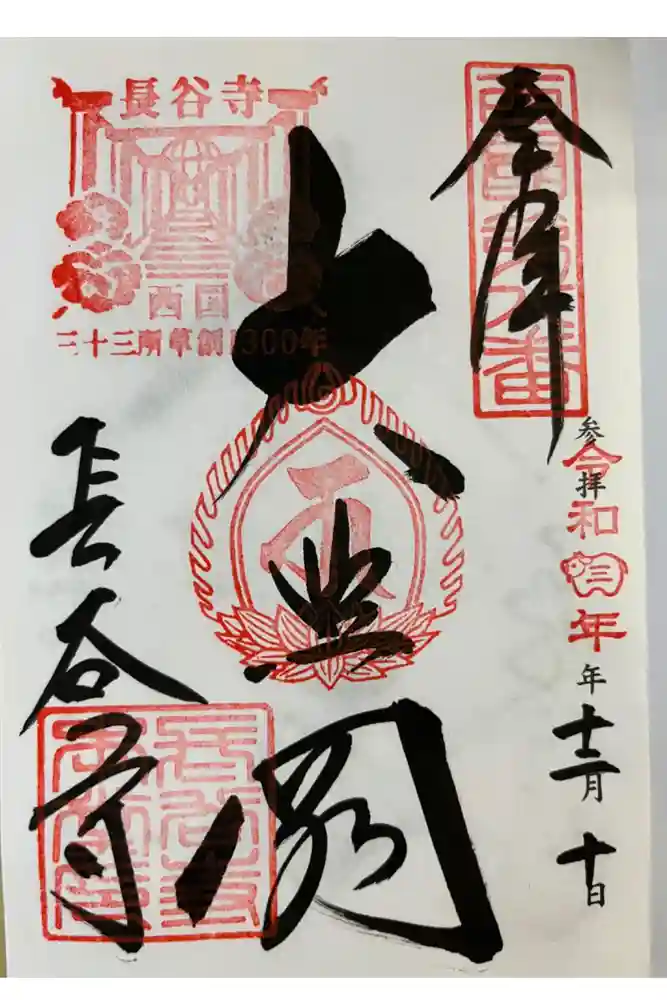 奉拝
西国第八番
参拝
令和三年
年
十二月
十日
大悲閣
長谷寺
長谷寺
西国
三十三所草創1300年